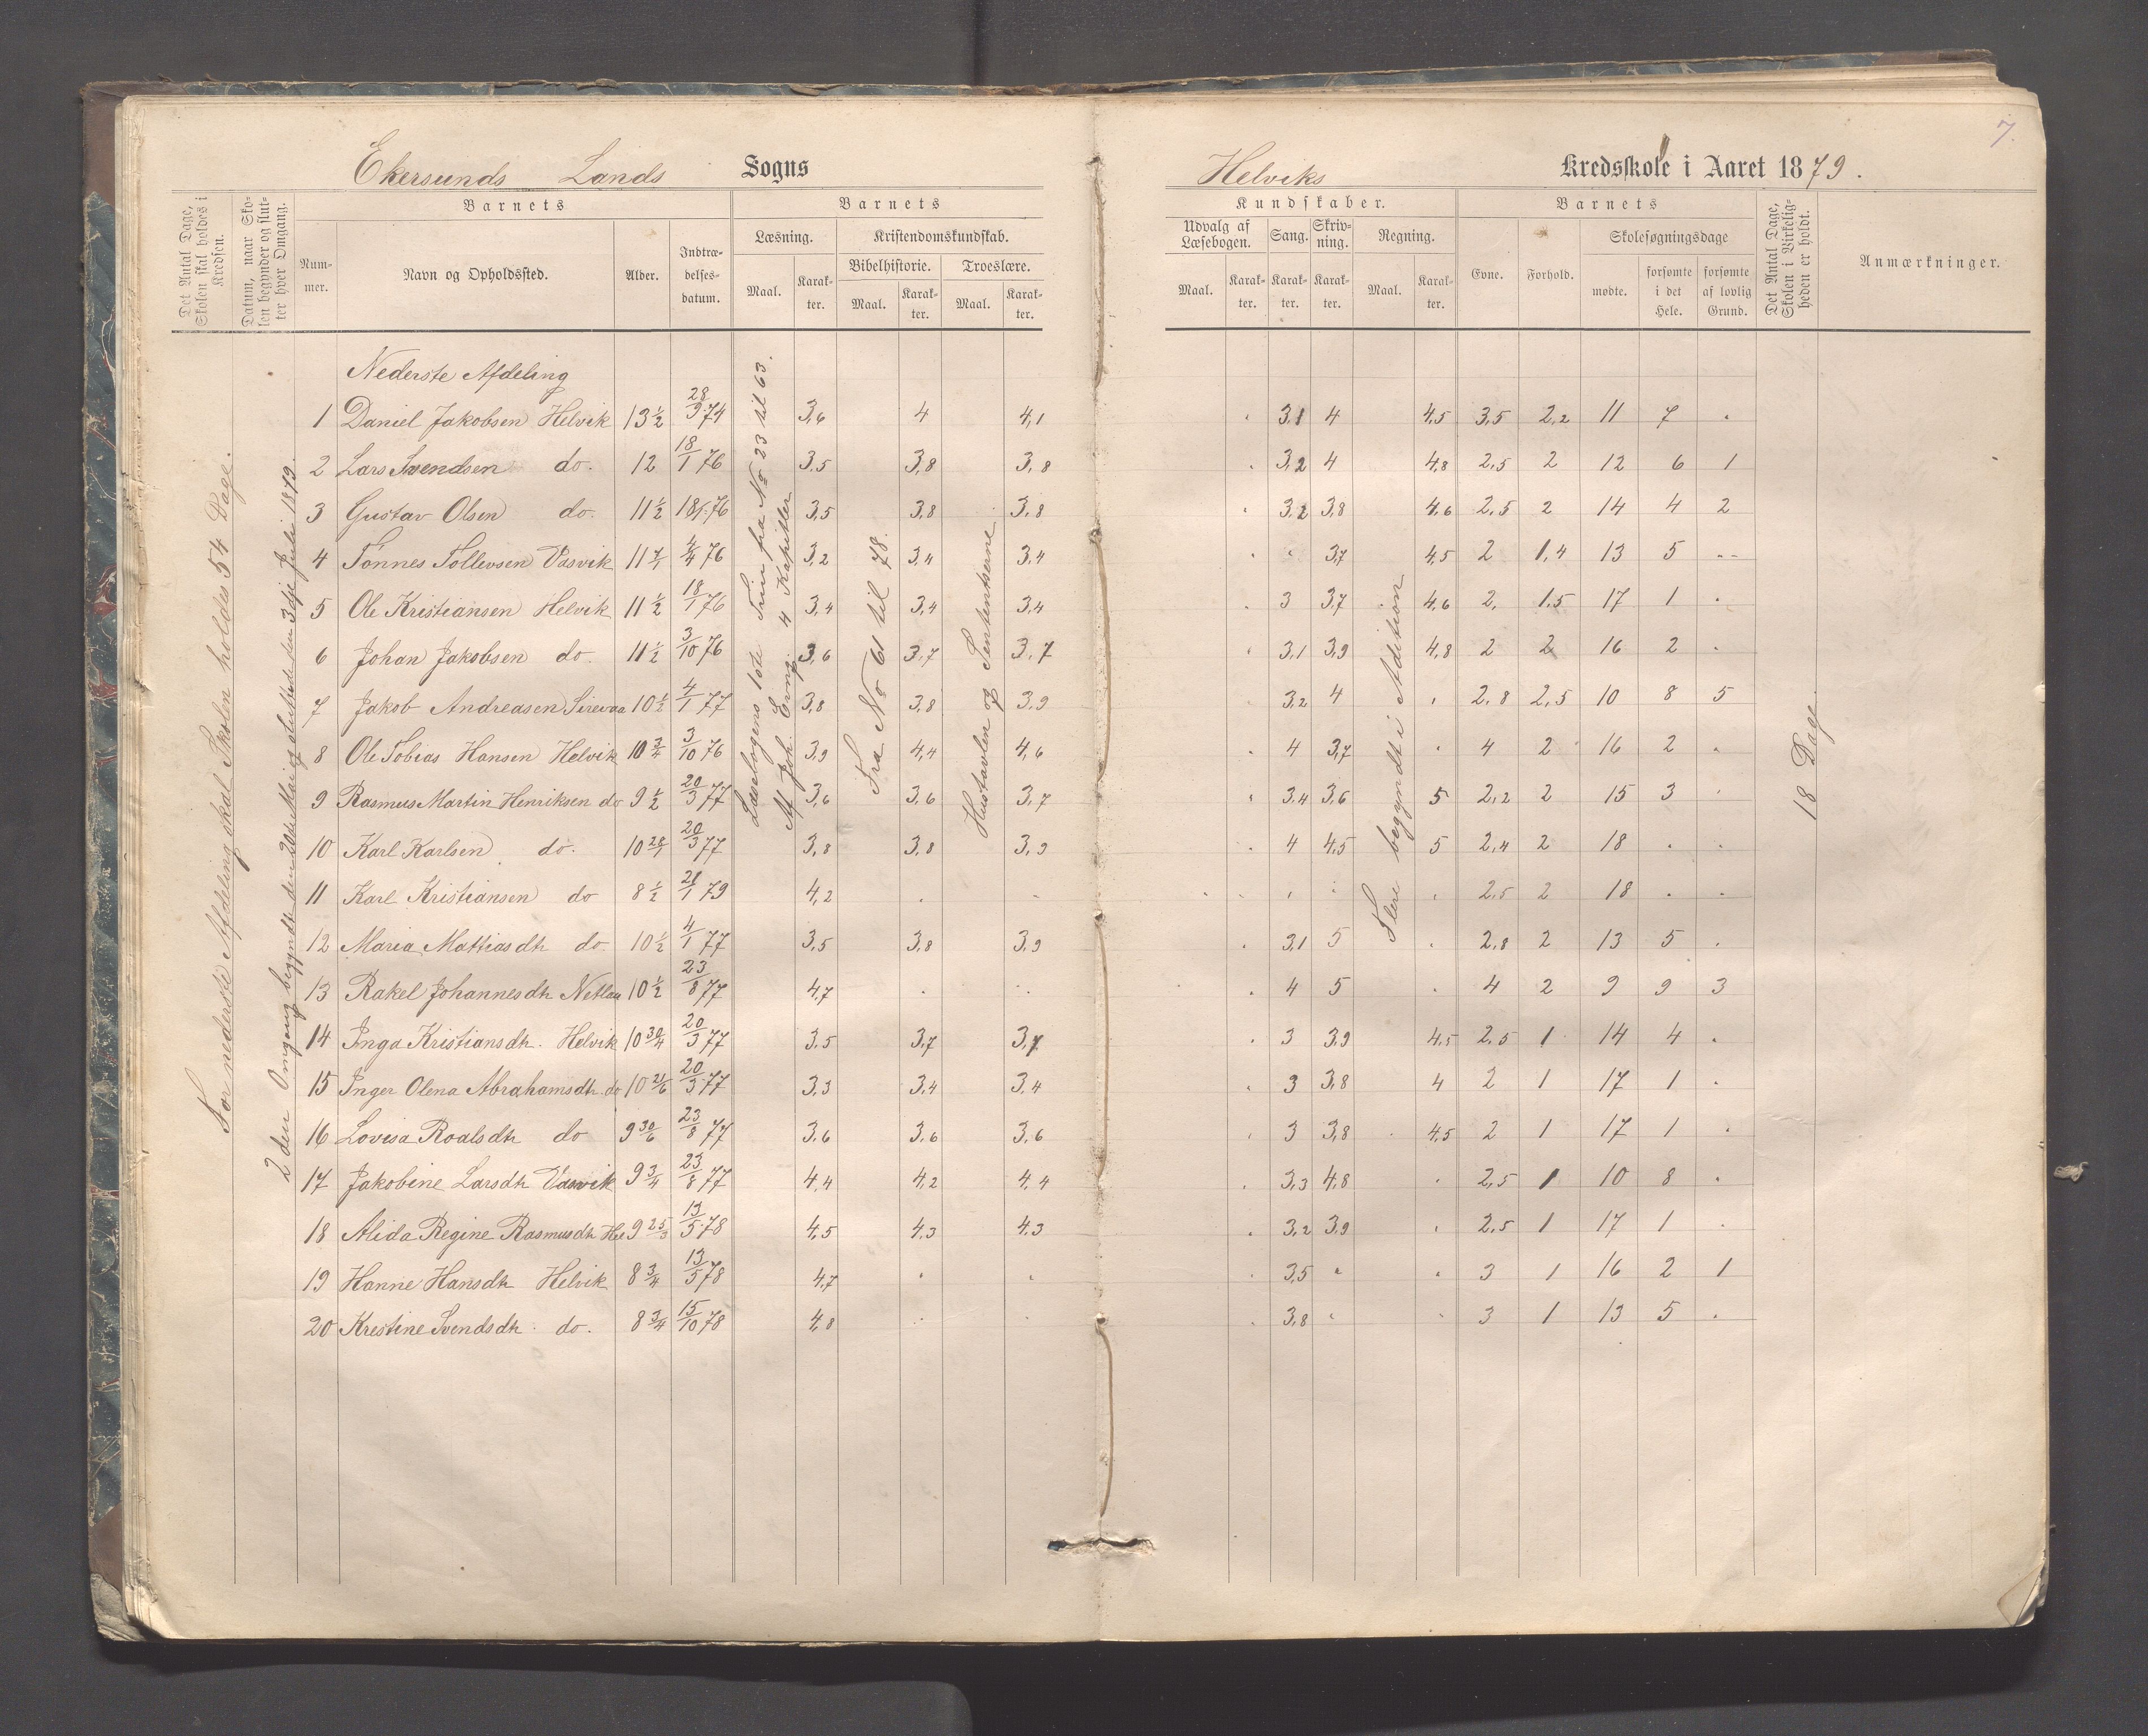 7.
Ekersunds Lands Sogns
Helviks Kredsskole i Aaret 1879.
Det Antal Dage, Skolen skal holdes i Kredsen.
Datum, naar Skolen begynder og slutter hver Omgang.
Barnets
Barnets
Kundskaber.
Barnets
Det Antal Dage, Skolen i Virkeligheden er holdt.
Anmærkninger.
Nummer.
Navn og Opholdssted.
Alder.
Indtrædelsesdatum.
Læsning.
Kristendomskundskab.
Bibelhistorie.
Troeslære.
Udvalg af Læsebogen.
Sang.
Skrivning.
Regning.
Evne.
Forhold.
Skolesøgningsdage
mødte.
forsømte i det Hele.
forsømte af lovlig Grund.
Maal. Karakter. Maal. Karakter. Maal. Karakter.
Maal. Karakter. Karakter. Karakter. Maal. Karakter.
For nederste Afdeling skal Skolen holdes 54 Dage.
2den Omgang begyndte den 20de Mai og sluttede den 3dje Juli 1879.
Læsebogens 1ste Trin fra No 23 til 63.
Af Joh. Evang. 4 Kapitler
Fra No 61 til 78.
Hustavlen og Sententserne
Flere begyndt i Adition
18 Dage
Nederste Afdeling
1 Daniel Jakobsen Helvik 13½ 28/9 74 3,6 4 4,1 3,1 4 4,5 3,5 2,2 11 7 .
2 Lars Svendsen do. 12 18/1 76 3,5 3,8 3,8 3,2 4 4,8 2,5 2 12 6 1
3 Gustav Olsen do. 11½ 18/1 76 3,5 3,8 3,8 3,2 3,8 4,6 2,5 2 14 4 2
4 Tønnes Tollevsen Vasvik 11 4/4 76 3,2 3,4 3,4 3,7 4,5 2 1,4 13 5 --
5 Ole Kristiansen Helvik 11½ 18/1 76 3,4 3,4 3,4 3 3,7 4,6 2, 1,5 17 1 .
6 Johan Jakobsen do. 11½ 3/10 76 3,6 3,7 3,7 3,1 3,9 4,8 2 2 16 2 .
7 Jakob Andreasen Sirevaa 10½ 4/1 77 3,8 3,8 3,9 3,2 4 . 2,8 2,5 10 8 5
8 Ole Tobias Hansen Helvik 10¾ 3/10 76 3,9 4,4 4,6 4 3,7 . 4 2 16 2 .
9 Rasmus Martin Henriksen do 9½ 20/3 77 3,6 3,6 3,7 3,4 3,6 5 2,2 2 15 3 .
10 Karl Karlsen do. 10 28/7 20/3 77 3,8 3,8 3,9 4 4,5 5 2,4 2 18 . .
11 Karl Kristiansen do 8½ 21/1 79 4,2 . . . . . 2,5 2 18 . .
12 Maria Mattiasdh do 10½ 4/1 77 3,5 3,8 3,9 3,1 5 . 2,8 2 13 5 .
13 Rakel Johannesdh Netlan 10½ 23/8 77 4,7 . . 4 5 . 4 2 9 9 3
14 Inga Kristiansdh. Helvik 10 30/4 20/3 77 3,5 3,7 3,7 3 3,9 4,5 2,5 1 14 4 .
15 Inger Olena Abrahamsdh. do 10 21/6 20/3 77 3,3 3,4 3,4 3 3,8 4 2 1 17 1 .
16 Lovisa Roalsdh do 9 30/6 23/8 77 3,6 3,6 3,6 3 3,8 4,5 2 1 17 1 .
17 Jakobine Larsdh Vasvik 9¾ 23/8 77 4,4 4,2 4,4 3,3 4,8 . 2,5 1 10 8 .
18 Alida Regine Rasmusdh Hel 9 25/3 13/5 78 4,5 4,3 4,3 3,2 3,9 . 2,5 1 17 1 .
19 Hanne Hansdh Helvik 8¾ 13/5 78 4,7 . . 3,5 . . 3 1 16 2 1
20 Kristine Svendsdh. do. 8¾ 15/10 78 4,8 . . 3,8 . . 3 1 13 5 .